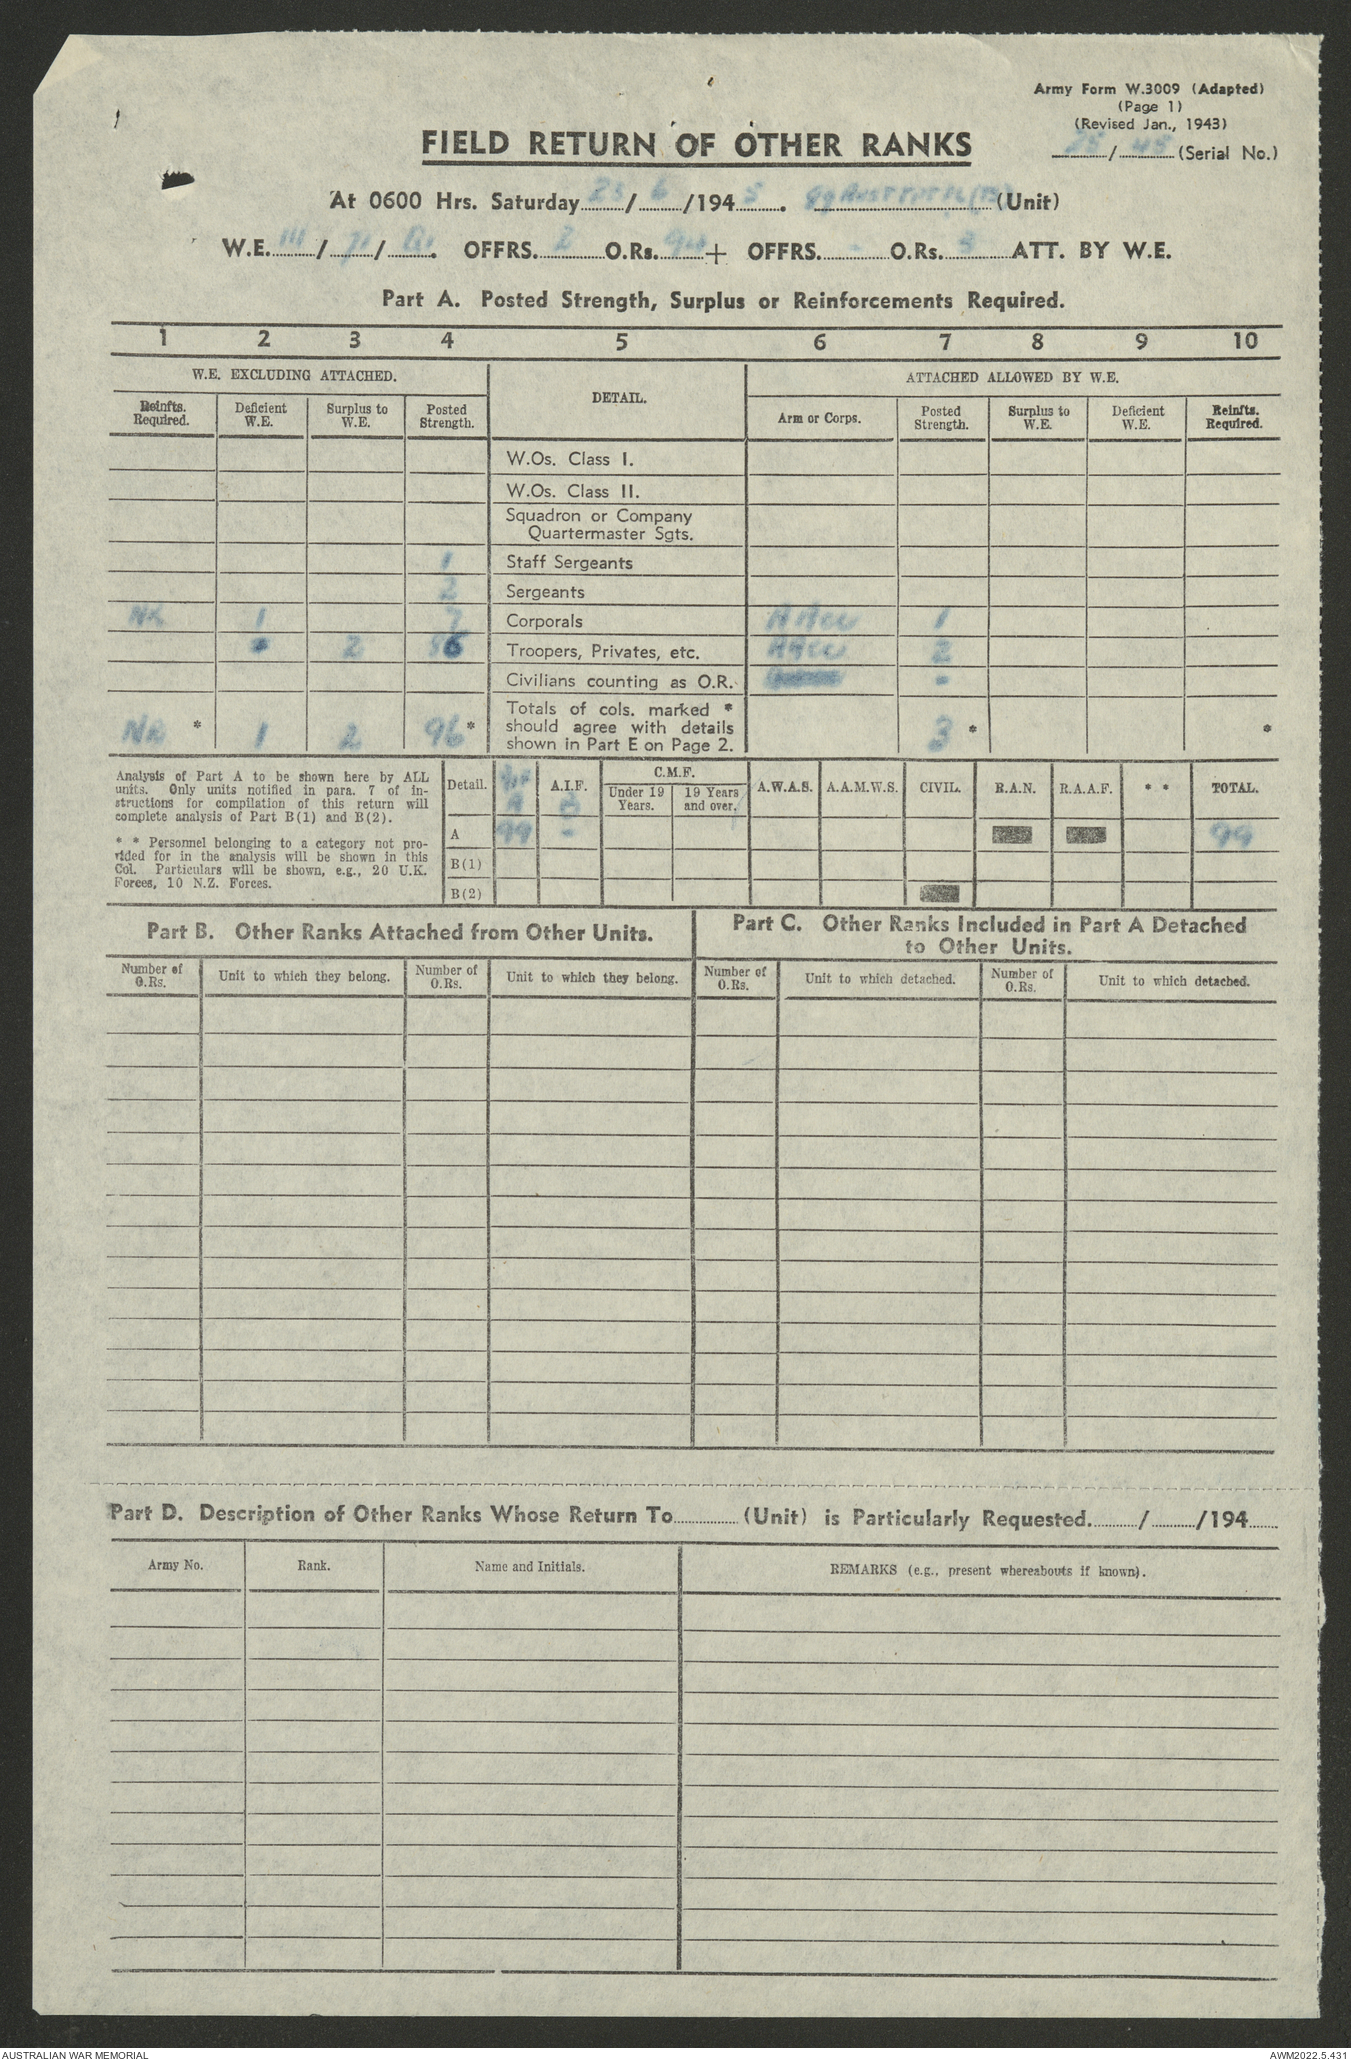 Army Form W.3009 (Adapted)
(Page 1)
(Revised Jan., 1943)
25/45 (Serial No.)
FIELD RETURN OF OTHER RANKS
At 0600 Hrs. Saturday 23/6/1945. (Unit)
W.E. III/ / OFFRS. 2 O.Rs. + OFFRS. - O.Rs. 3 ATT. BY W.E.
Part A. Posted Strength, Surplus or Reinforcements Required.
1 2 3 4 5 6 7 8 9 10
W.E. EXCLUDING ATTACHED. DETAIL. ATTACHED ALLOWED BY W.E.
Reinfts. Required. Deficient W.E. Surplus to W.E. Posted Strength. Arm or Corps. Posted Strength. Surplus to W.E. Deficient W.E. Reinfts. Required.
W.Os. Class I.
W.Os. Class II.
Squadron or Company
Quartermaster Sgts.
1 Staff Sergeants
2 Sergeants
1 7 Corporals AACC 1
2 86 Troopers, Privates, etc. AACC 2
Civilians counting as O.R. -
Totals of cols. marked *
should agree with details
shown in Part E on Page 2.
* 1 2 96* 3* *
Analysis of Part A to be shown here by ALL
units. Only units notified in para. 7 of in-
structions for compilation of this return will
complete analysis of Part B(1) and B(2).
* * Personnel belonging to a category not pro-
vided for in the analysis will be shown in this
Col. Particulars will be shown, e.g., 20 U.K.
Forces, 10 N.Z. Forces.
Detail. A.I.F. C.M.F. Under 19 Years. 19 Years and over. A.W.A.S. A.A.M.W.S. CIVIL. R.A.N. R.A.A.F. * * TOTAL.
A 99 - 99
B(1)
B(2)
Part B. Other Ranks Attached from Other Units.
Part C. Other Ranks Included in Part A Detached
to Other Units.
Number of O.Rs. Unit to which they belong. Number of O.Rs. Unit to which they belong. Number of O.Rs. Unit to which detached. Number of O.Rs. Unit to which detached.
Part D. Description of Other Ranks Whose Return To............ (Unit) is Particularly Requested........./........./194.....
Army No. Rank. Name and Initials. REMARKS (e.g., present whereabouts if known).
AUSTRALIAN WAR MEMORIAL
AWM2022.5.431